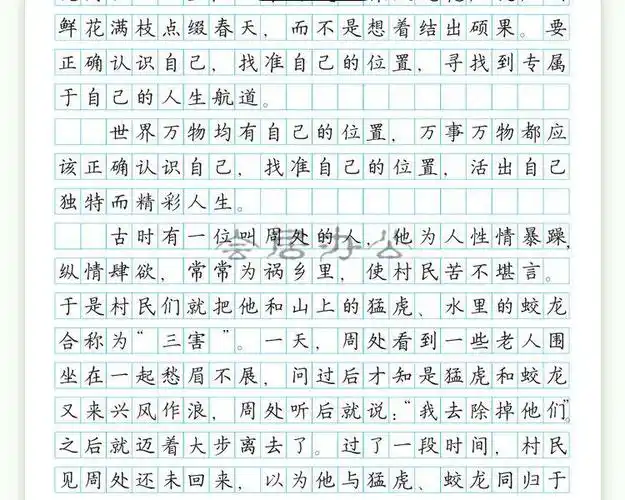 鲜花满枝点缀春天，而不是想着结出硕果。要
正确认识自己，找准自己的位置，寻找到专属
于自己的人生航道。
世界万物均有自己的位置，万事万物都应
该正确认识自己，找准自己的位置，活出自己
独特而精彩人生。
古时有一位叫周处的人，他为人性情暴躁，
纵情肆欲，常常为祸乡里，使村民苦不堪言。
于是村民们就把他和山上的猛虎、水里的蛟龙
合称为“三害”。一天，周处看到一些老人围
坐在一起愁眉不展，问过后才知是猛虎和蛟龙
又来兴风作浪，周处听后就说：“我去除掉他们”。
之后就迈着大步离去了。过了一段时间，村民
见周处还未回来，以为他与猛虎、蛟龙同归于